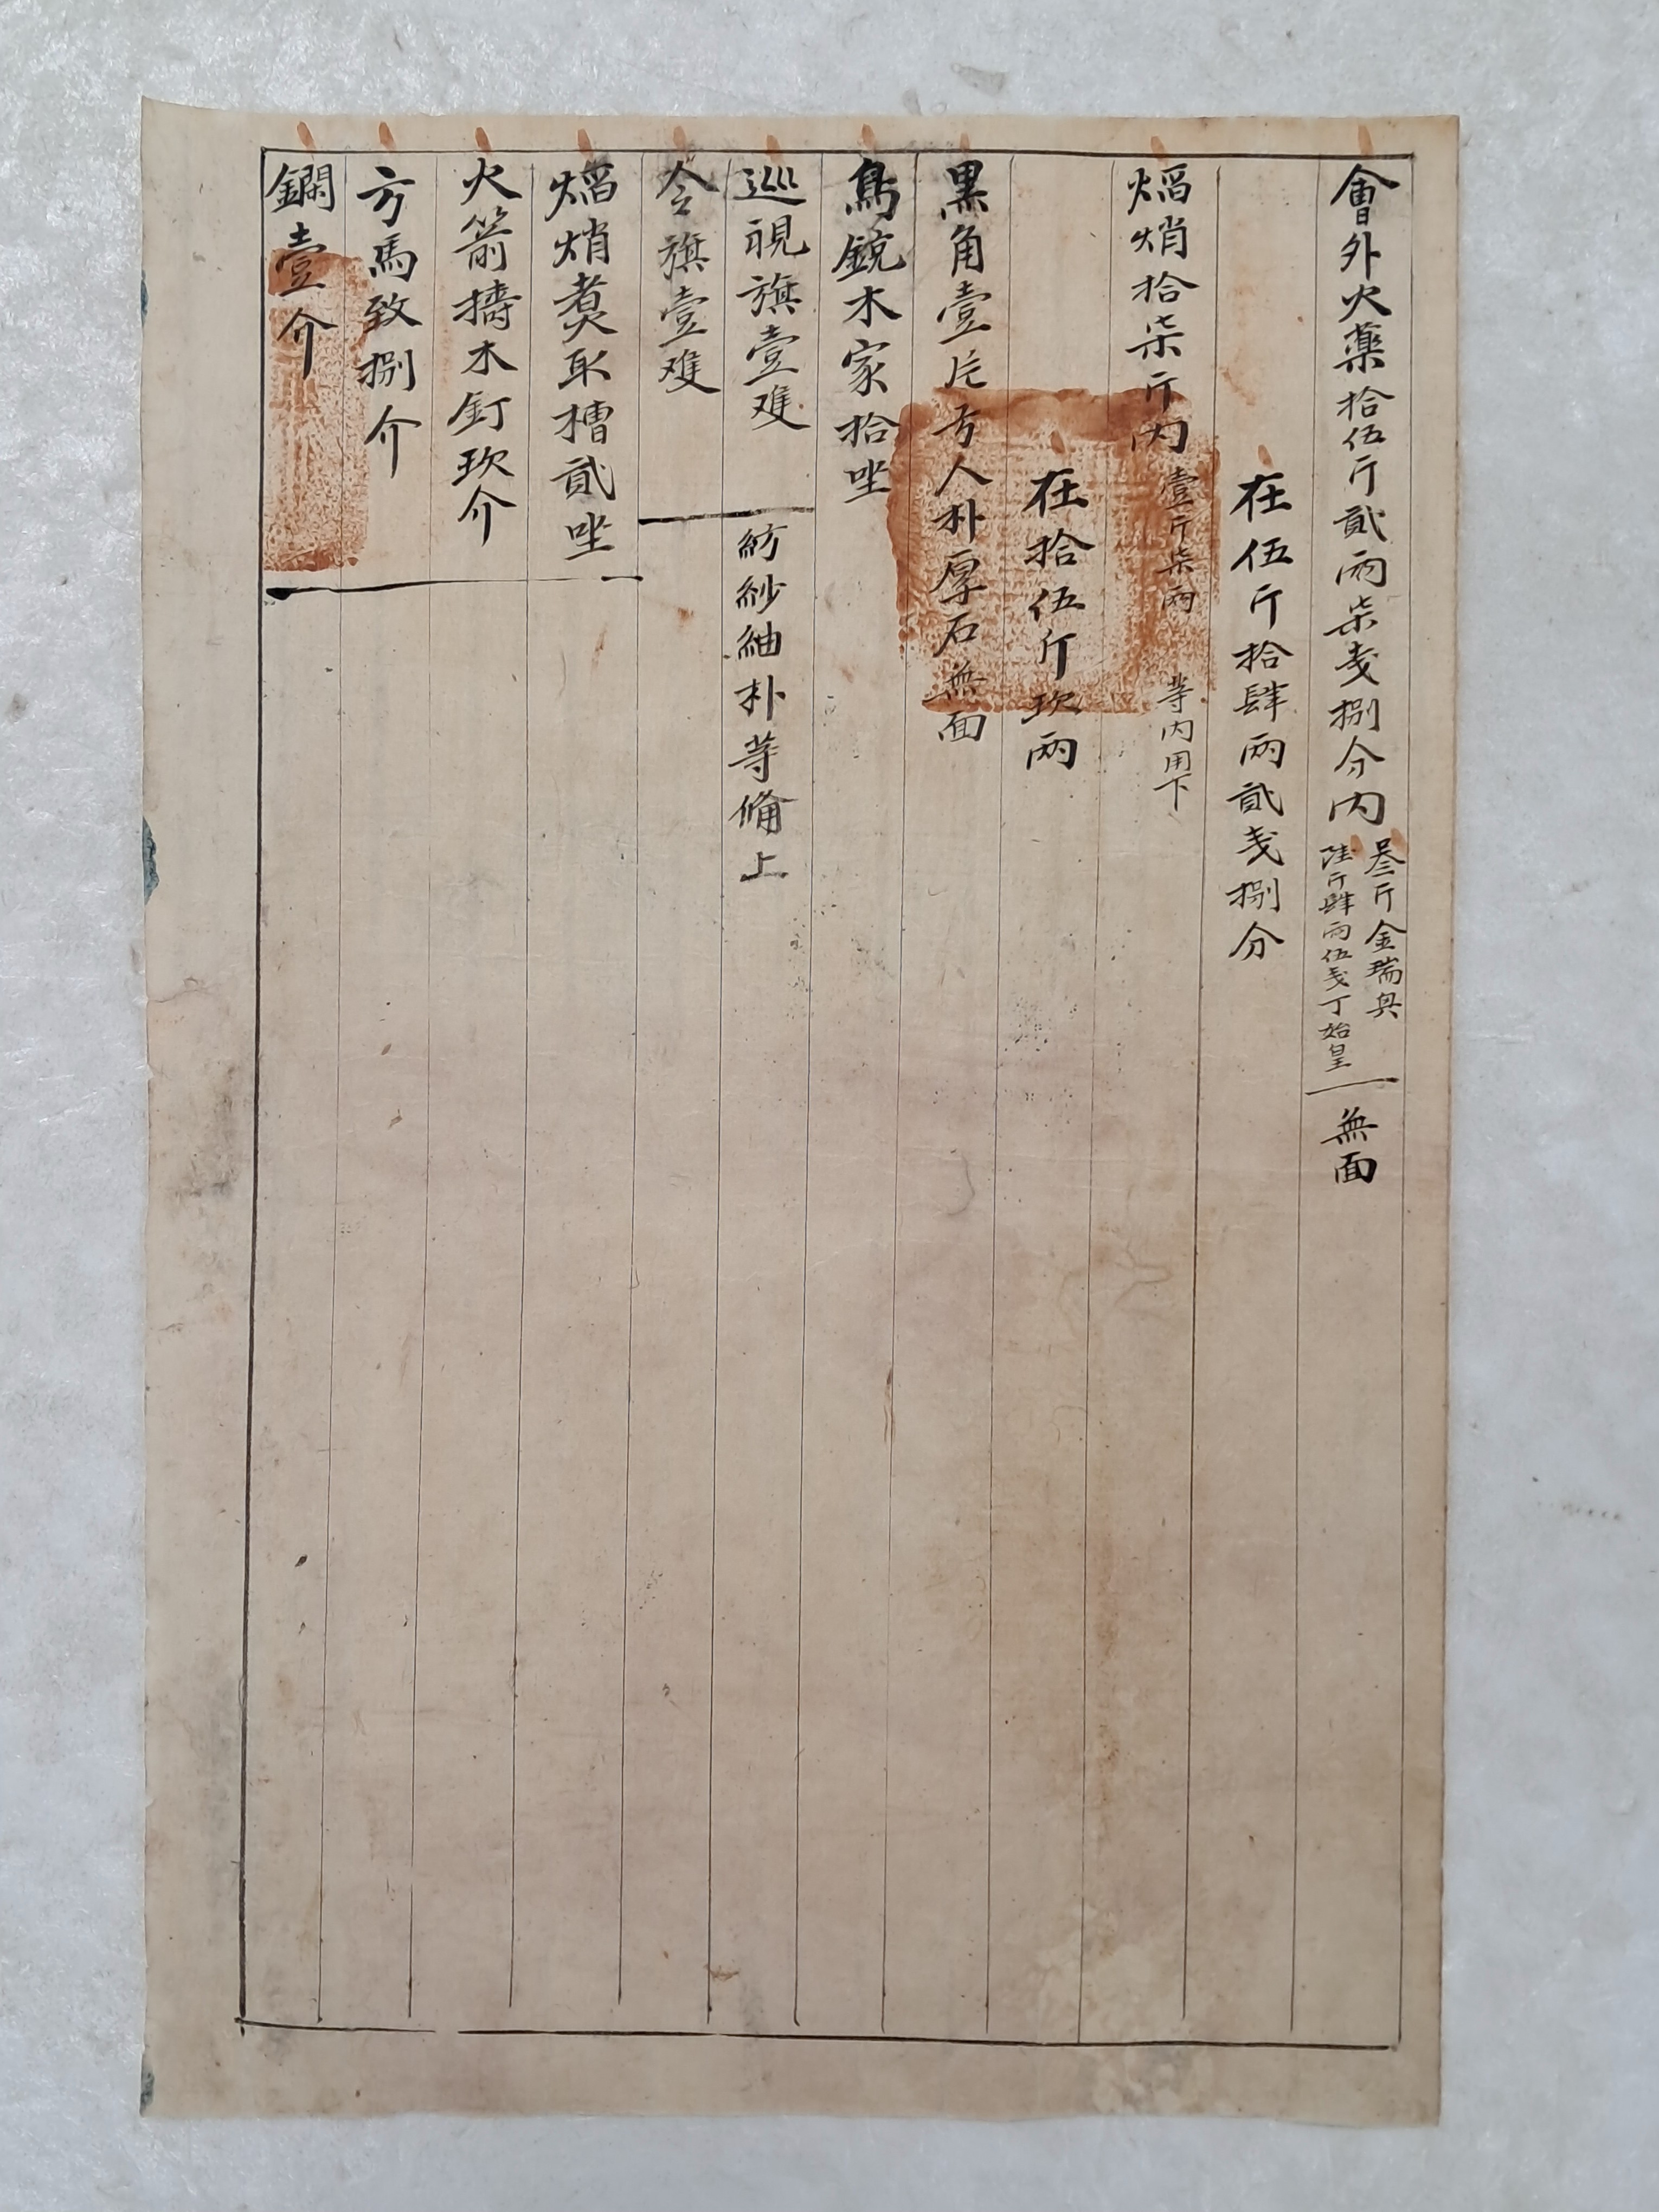 會外火藥拾伍斤貳兩柒戔捌分內 叄斤金瑞興
陸斤肆兩伍戔丁始皇
無面
在伍斤拾肆兩貳戔捌分
焰焇拾柒斤內 壹斤柒兩 等內用下
在拾伍斤玖兩
黑角壹片 亏人朴厚石無面
鳥銃木家拾坐
巡視旗壹难
紡紗紬朴等俻上
令旗壹难
焰焇煑取槽貳坐
火箭擣木釘玖介
方馬致捌介
鐦壹介